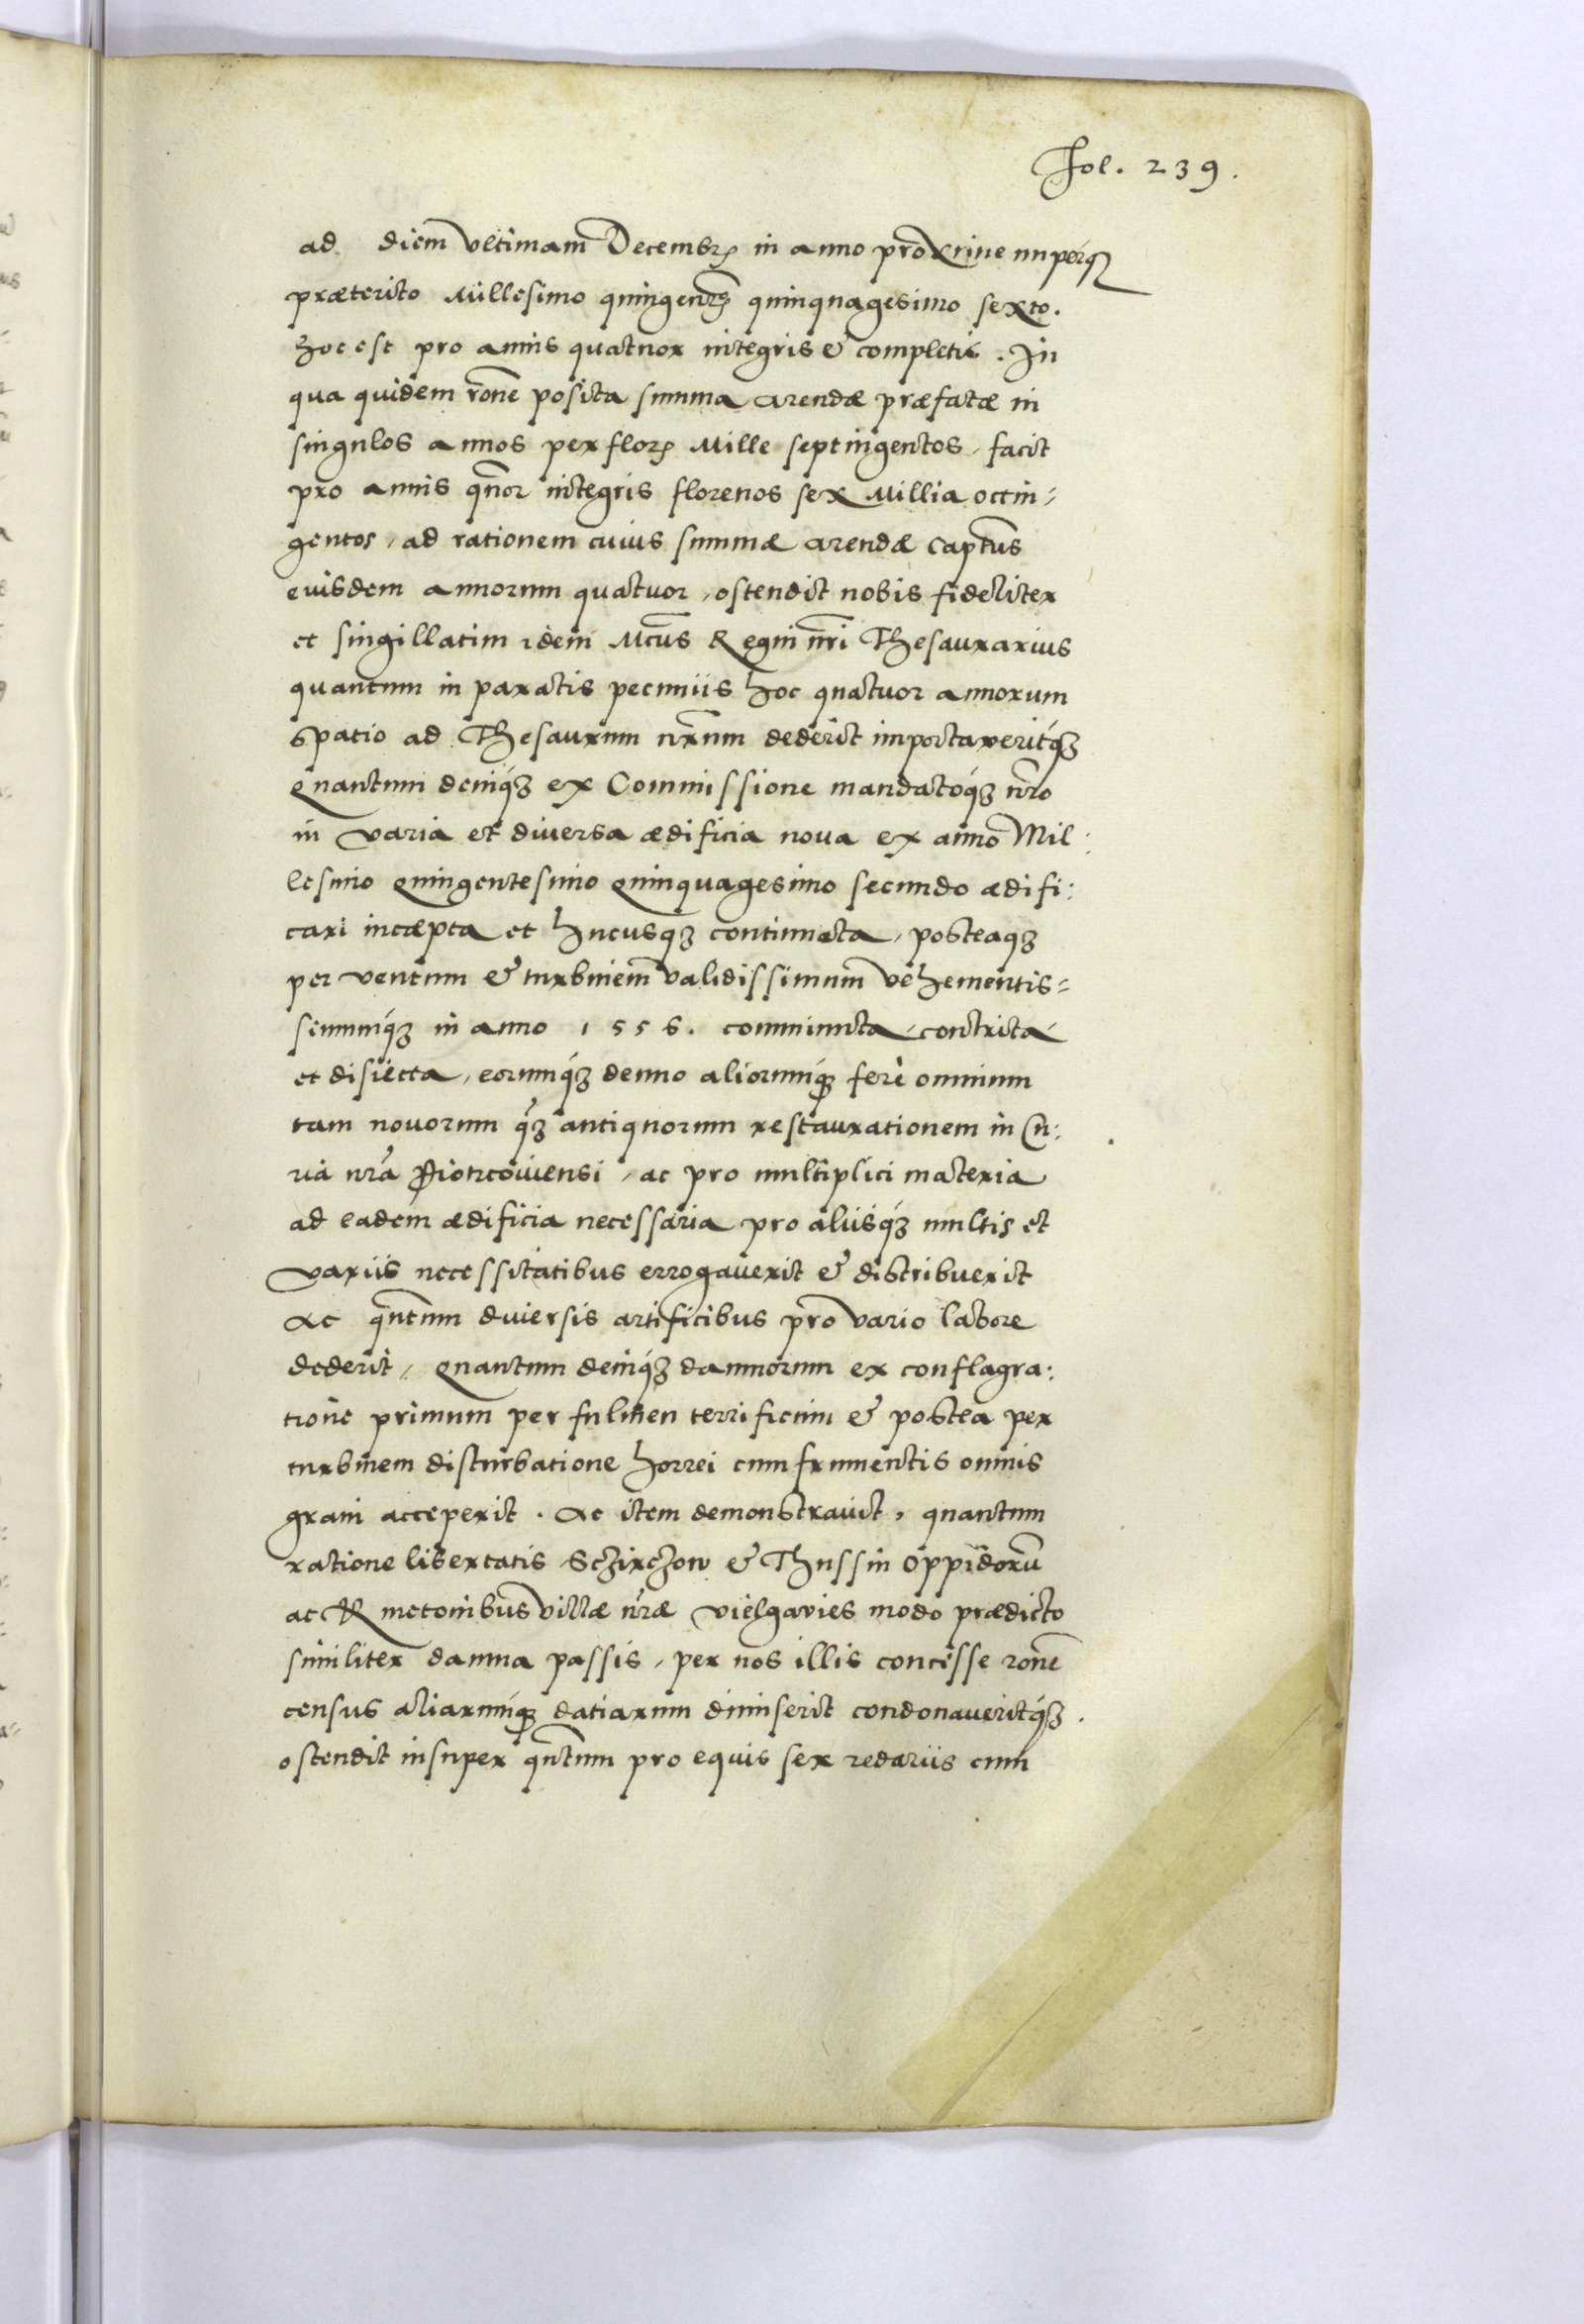 Fol. 239.
ad diem̅ vltimam̅ Decembrꝭ in anno pro̅xime nuperq3
præterito Millesimo quingentes̅ quinquagesimo sexto.
hoc est pro annis quatuor integris & completis. In
qua quidem ro̅ne posita summa arendæ præfatæ in
singulos annos per florꝭ Mille septingentos, facit
pro annis qu̅or integris florenos sex Millia octin=
gentos, ad rationem cuius summæ arendæ Captus
euisdem annorum quatuor, ostendit nobis fideliter
et singillatim idem Mcus̅ Regni nr̅i Thesaurarius
quantum in paratis pecuniis hoc quatuor annorum
spatio ad Thesaurum nr̅um dederit importaveritq́3
Quantum deniq́3 ex Commissione mandatoq́3 nr̅o
in varia et diuersa ædificia noua ex anno Mil:
lesimo Quingentesimo Quinquagesimo secundo ædifi:
cari incæpta et hucusq3 continuata, posteaq3
per ventum & turbinem̅ validissimum̅ vehementis=
simumq́3 in anno 1556. comminuta, contrita,
et disiecta, eorumq́3 denuo aliorumq́3 ferè omnium
tam nouorum q̃3 antiquorum restaurationem in Cu:
ria nr̅a Piotrcouiensi, ac pro multiplici materia
ad eadem ædificia necessaria pro aliisq́3 multis et
variis necessitatibus errogauerit & distribuerit
Ac qu̅tum diuersis artificibus pro vario labore
dederit, Quantum deniq́3 damnorum ex conflagra:
tione primum per fulmen terrificum & postea per
turbinem disturbatione horrei cum frumentis omnis
grani acceperit. Ac item demonstrauit, quantum
ratione libertatis Sczirczow & Thussin Oppidoru̅
ac Kmetonibus villæ nr̅æ vielgavies modo prædicto
similiter damna passis, per nos illis concesse ro̅ne
census aliarumq́3 datiarum dimiserit condonaueritq́3.
ostendit insuper qu̅tum pro equis sex redariis cum